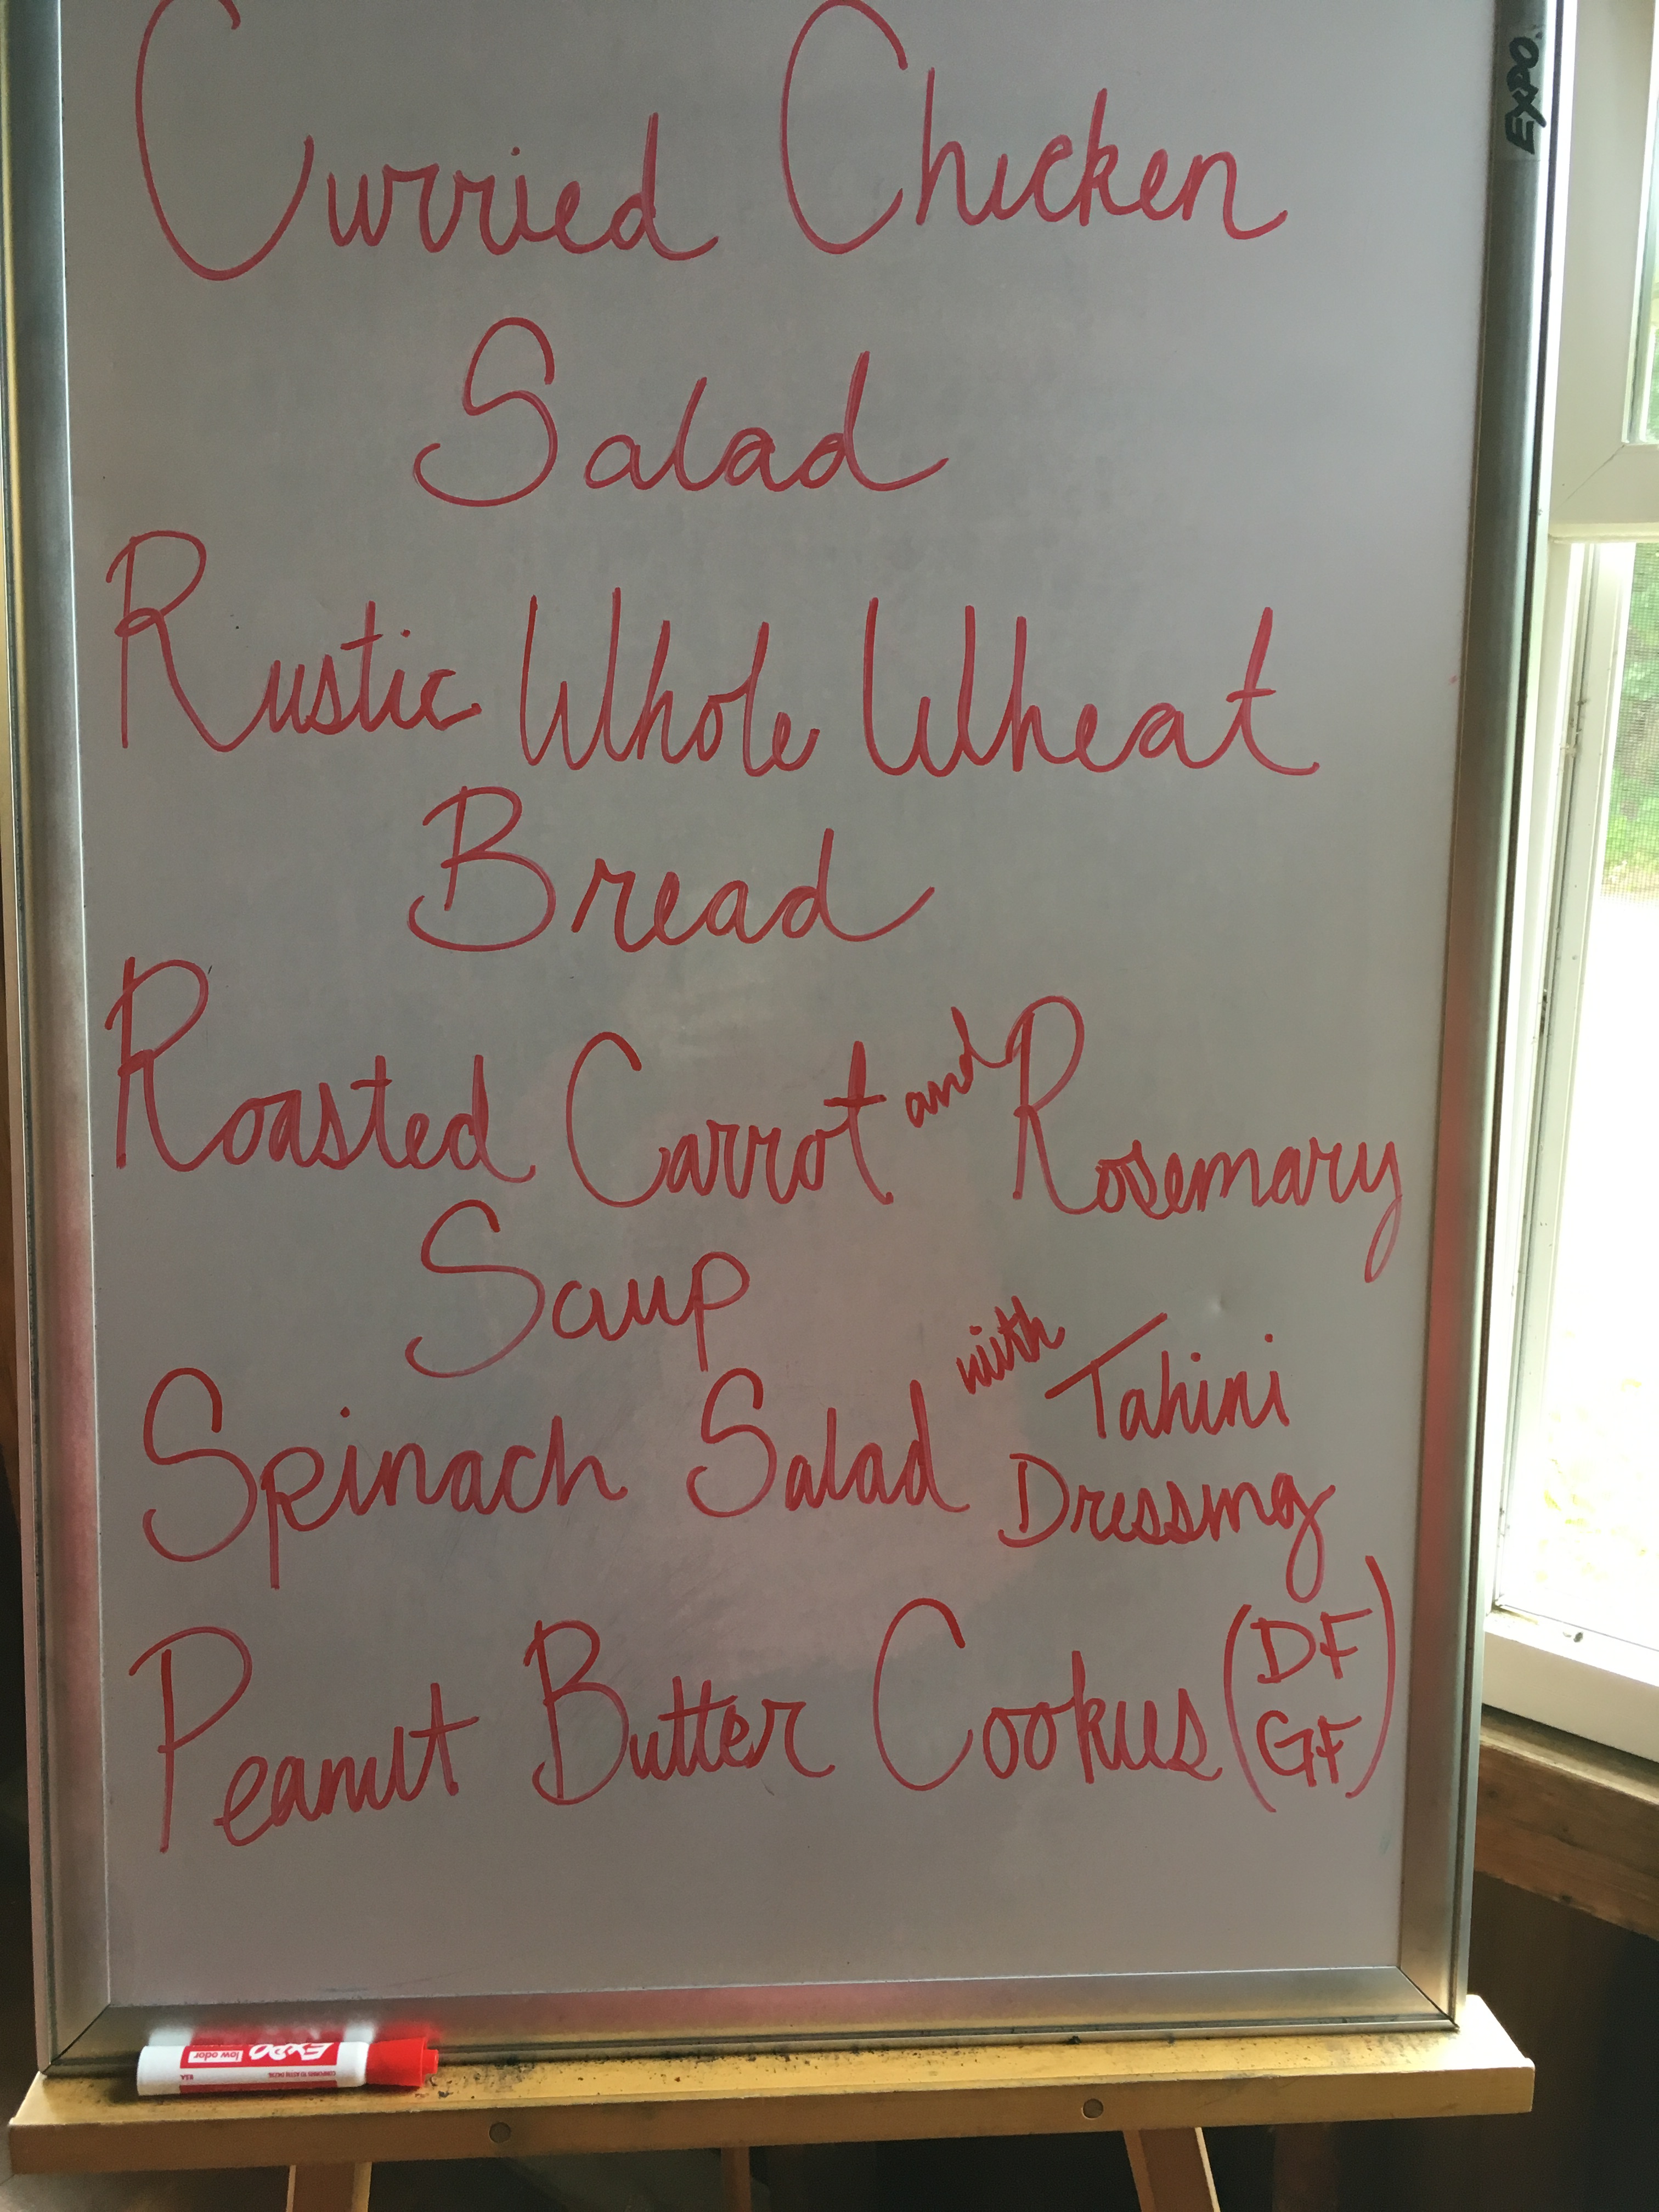 Curried Chicken
Salad
Rustic Whole Wheat
Bread
Roasted Carrot and Rosemary
Soup
Spinach Salad with Tahini
Dressing
Peanut Butter Cookies (DF
GF)
EXPO
EXPO
low odor